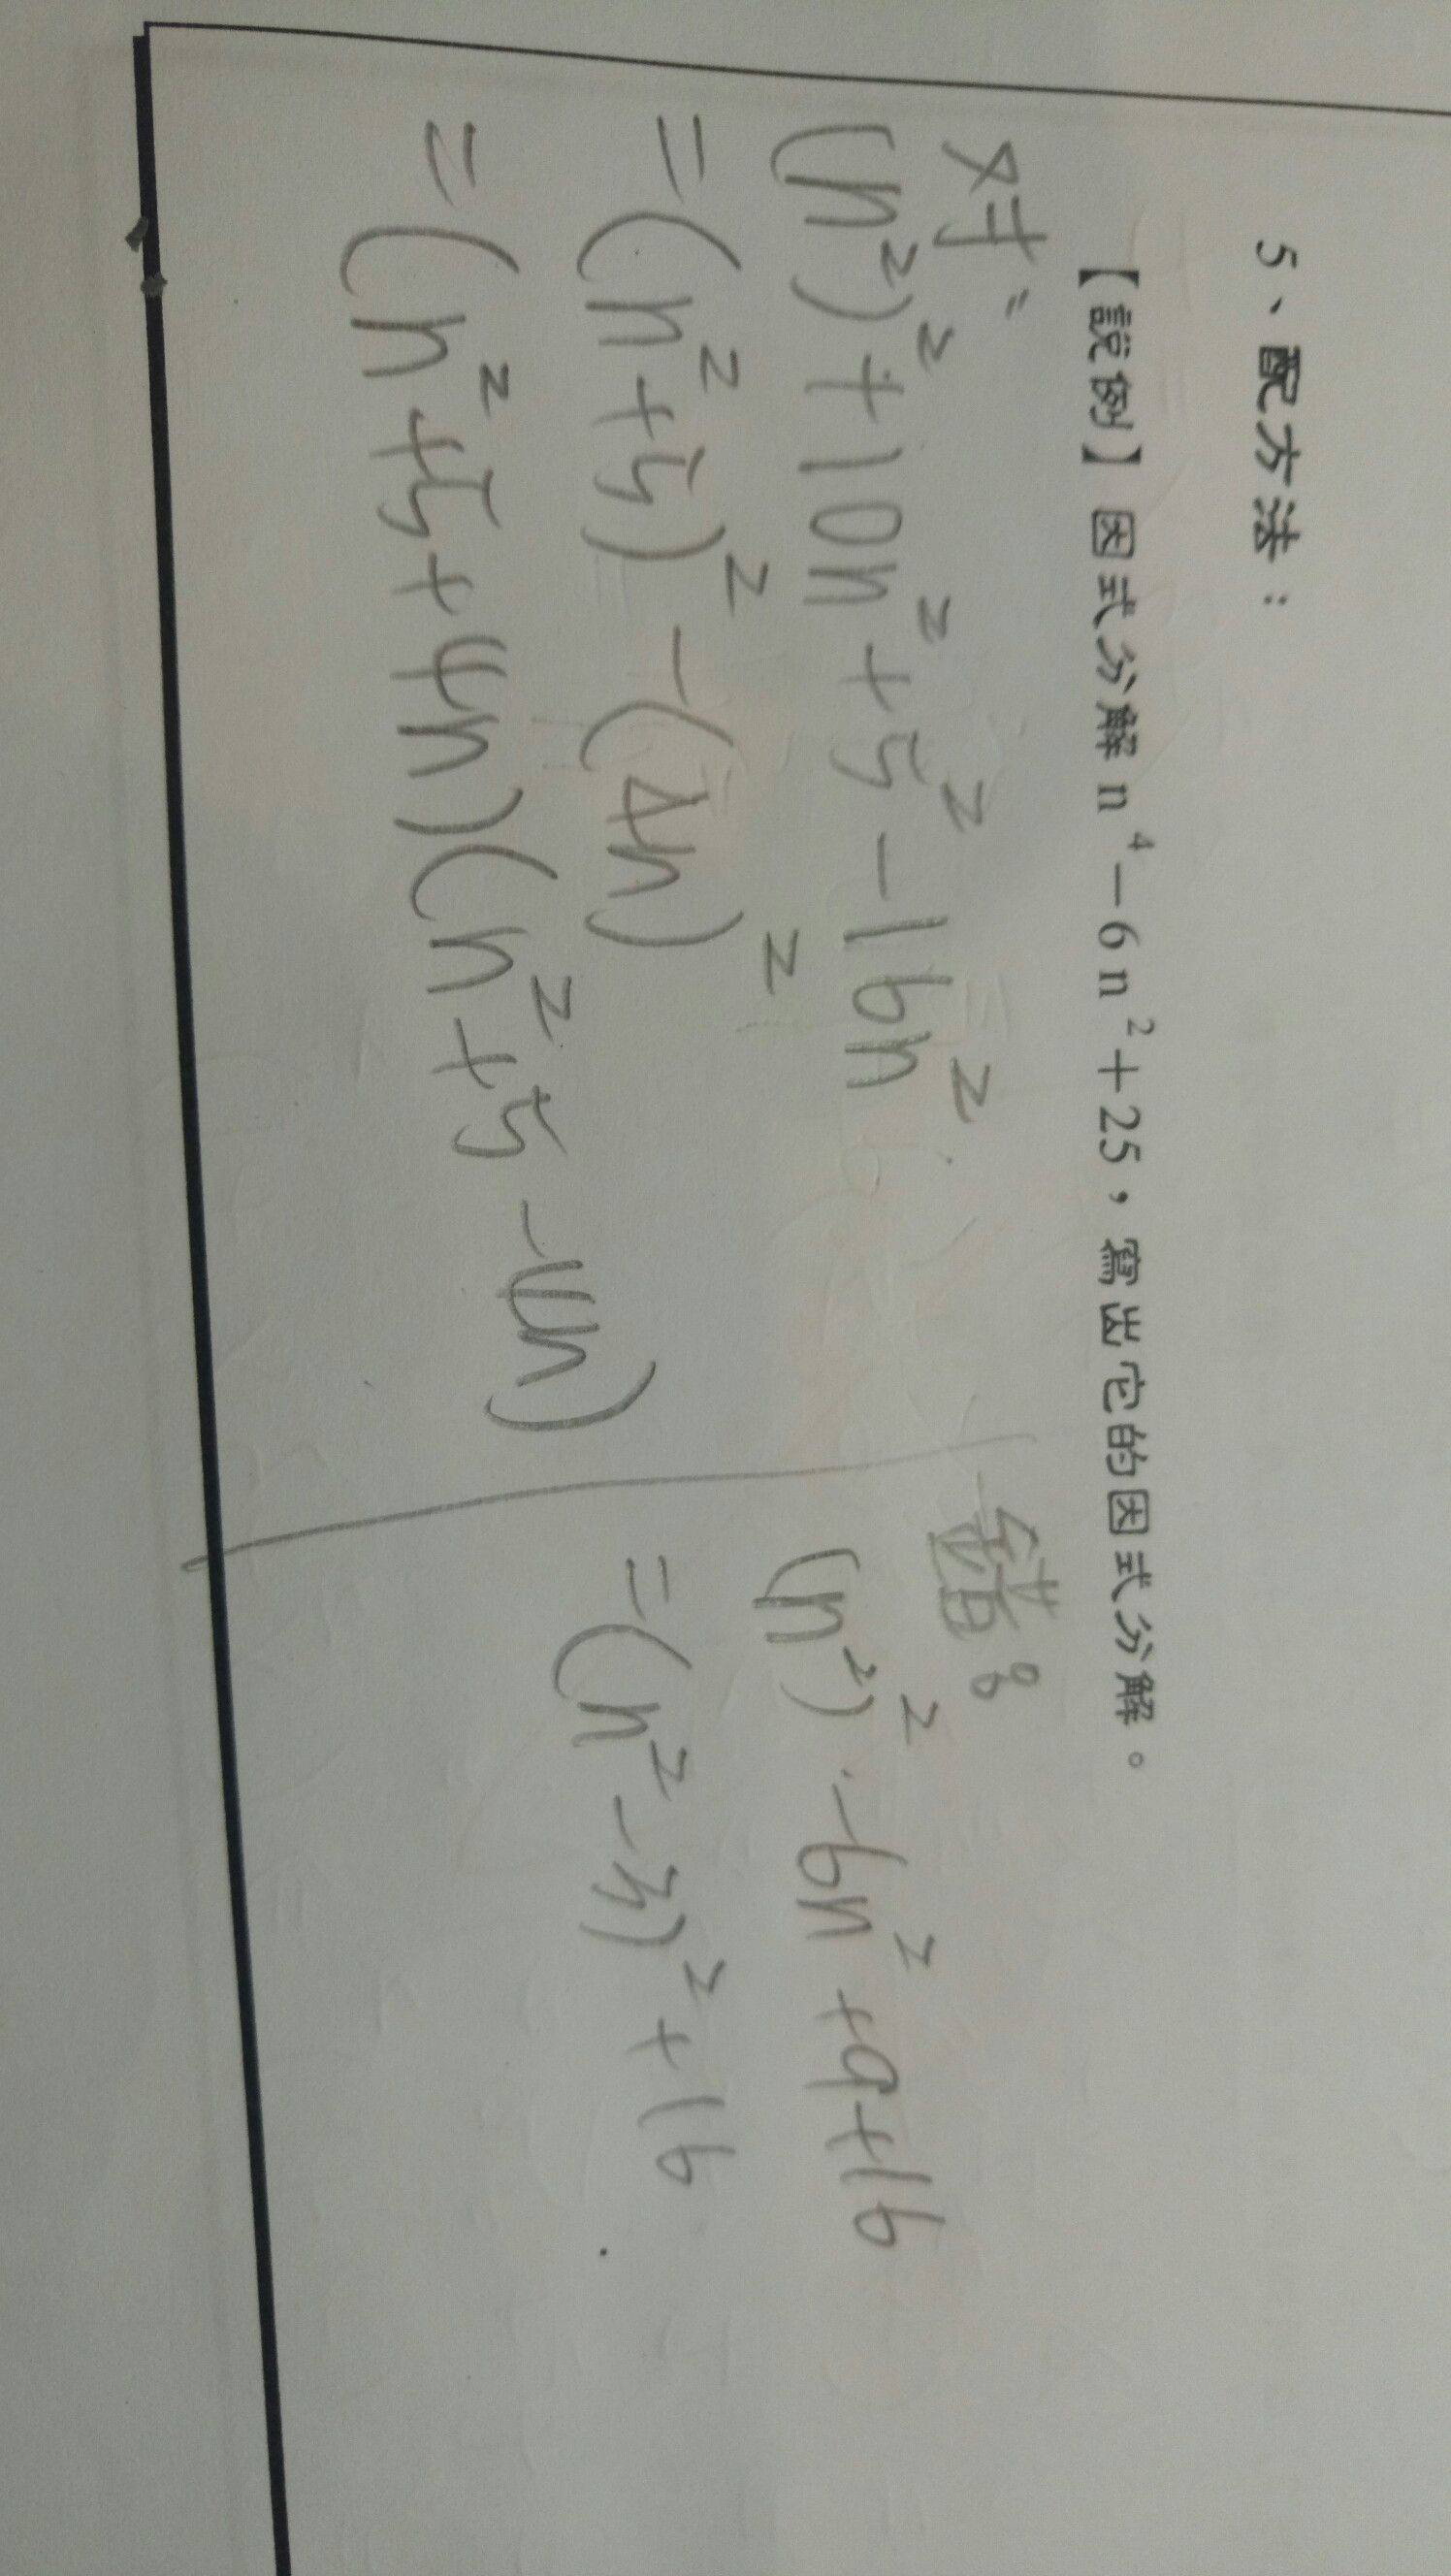 5、配方法：
【說例】因式分解 n⁴－6n²＋25，寫出它的因式分解。
对：
(n²)²+10n²+5²-16n²
=(n²+5)²-(4n)²
=(n²+5+4n)(n²+5-4n)
錯：
(n²)²-6n²+9+16
=(n²-3)²+16